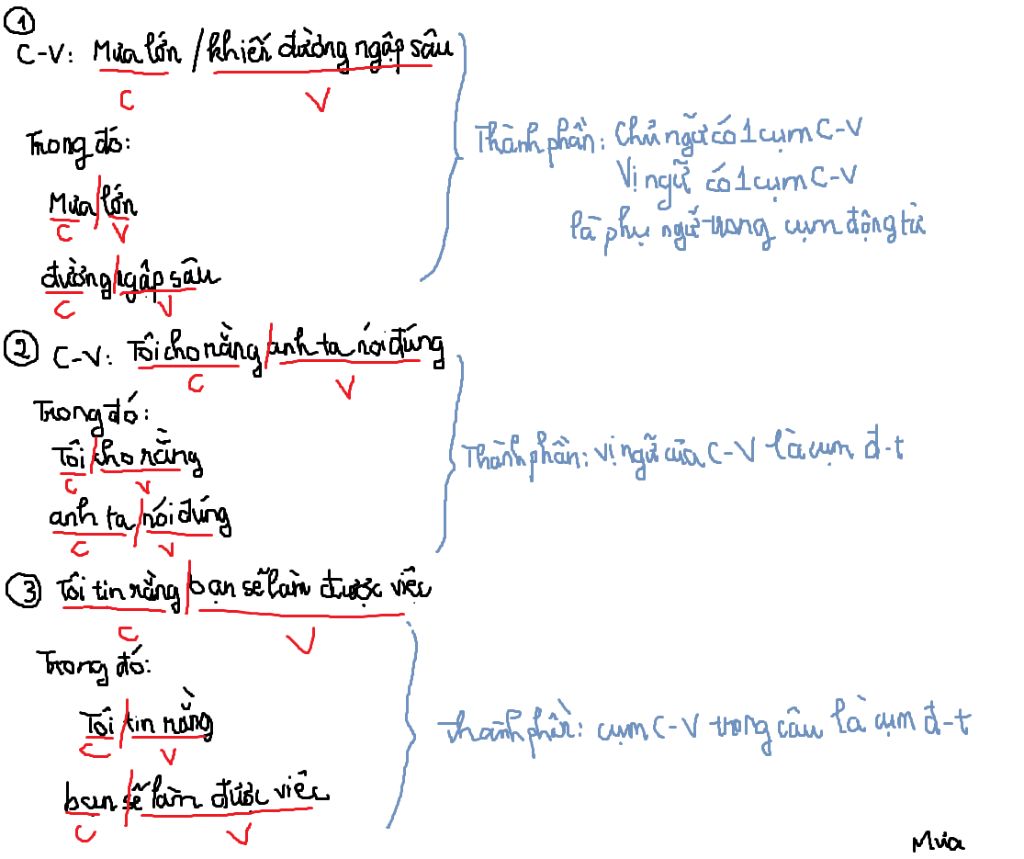 ①
C-V: Mưa lớn / khiến đường ngập sâu
C V
Trong đó:
Mưa/lớn
C V
đường/ngập sâu
C V
Thành phần: Chủ ngữ có 1 cụm C-V
Vị ngữ có 1 cụm C-V
là phụ ngữ trong cụm động từ
② C-V: Tôi cho rằng/anh ta nói đúng
C V
Trong đó:
Tôi/cho rằng
C V
anh ta/nói đúng
C V
Thành phần: vị ngữ của C-V là cụm đ-t
③ Tôi tin rằng/bạn sẽ làm được việc
C V
Trong đó:
Tôi/tin rằng
C V
bạn/sẽ làm được việc
C V
thành phần: cụm C-V trong câu là cụm đ-t
Mưa